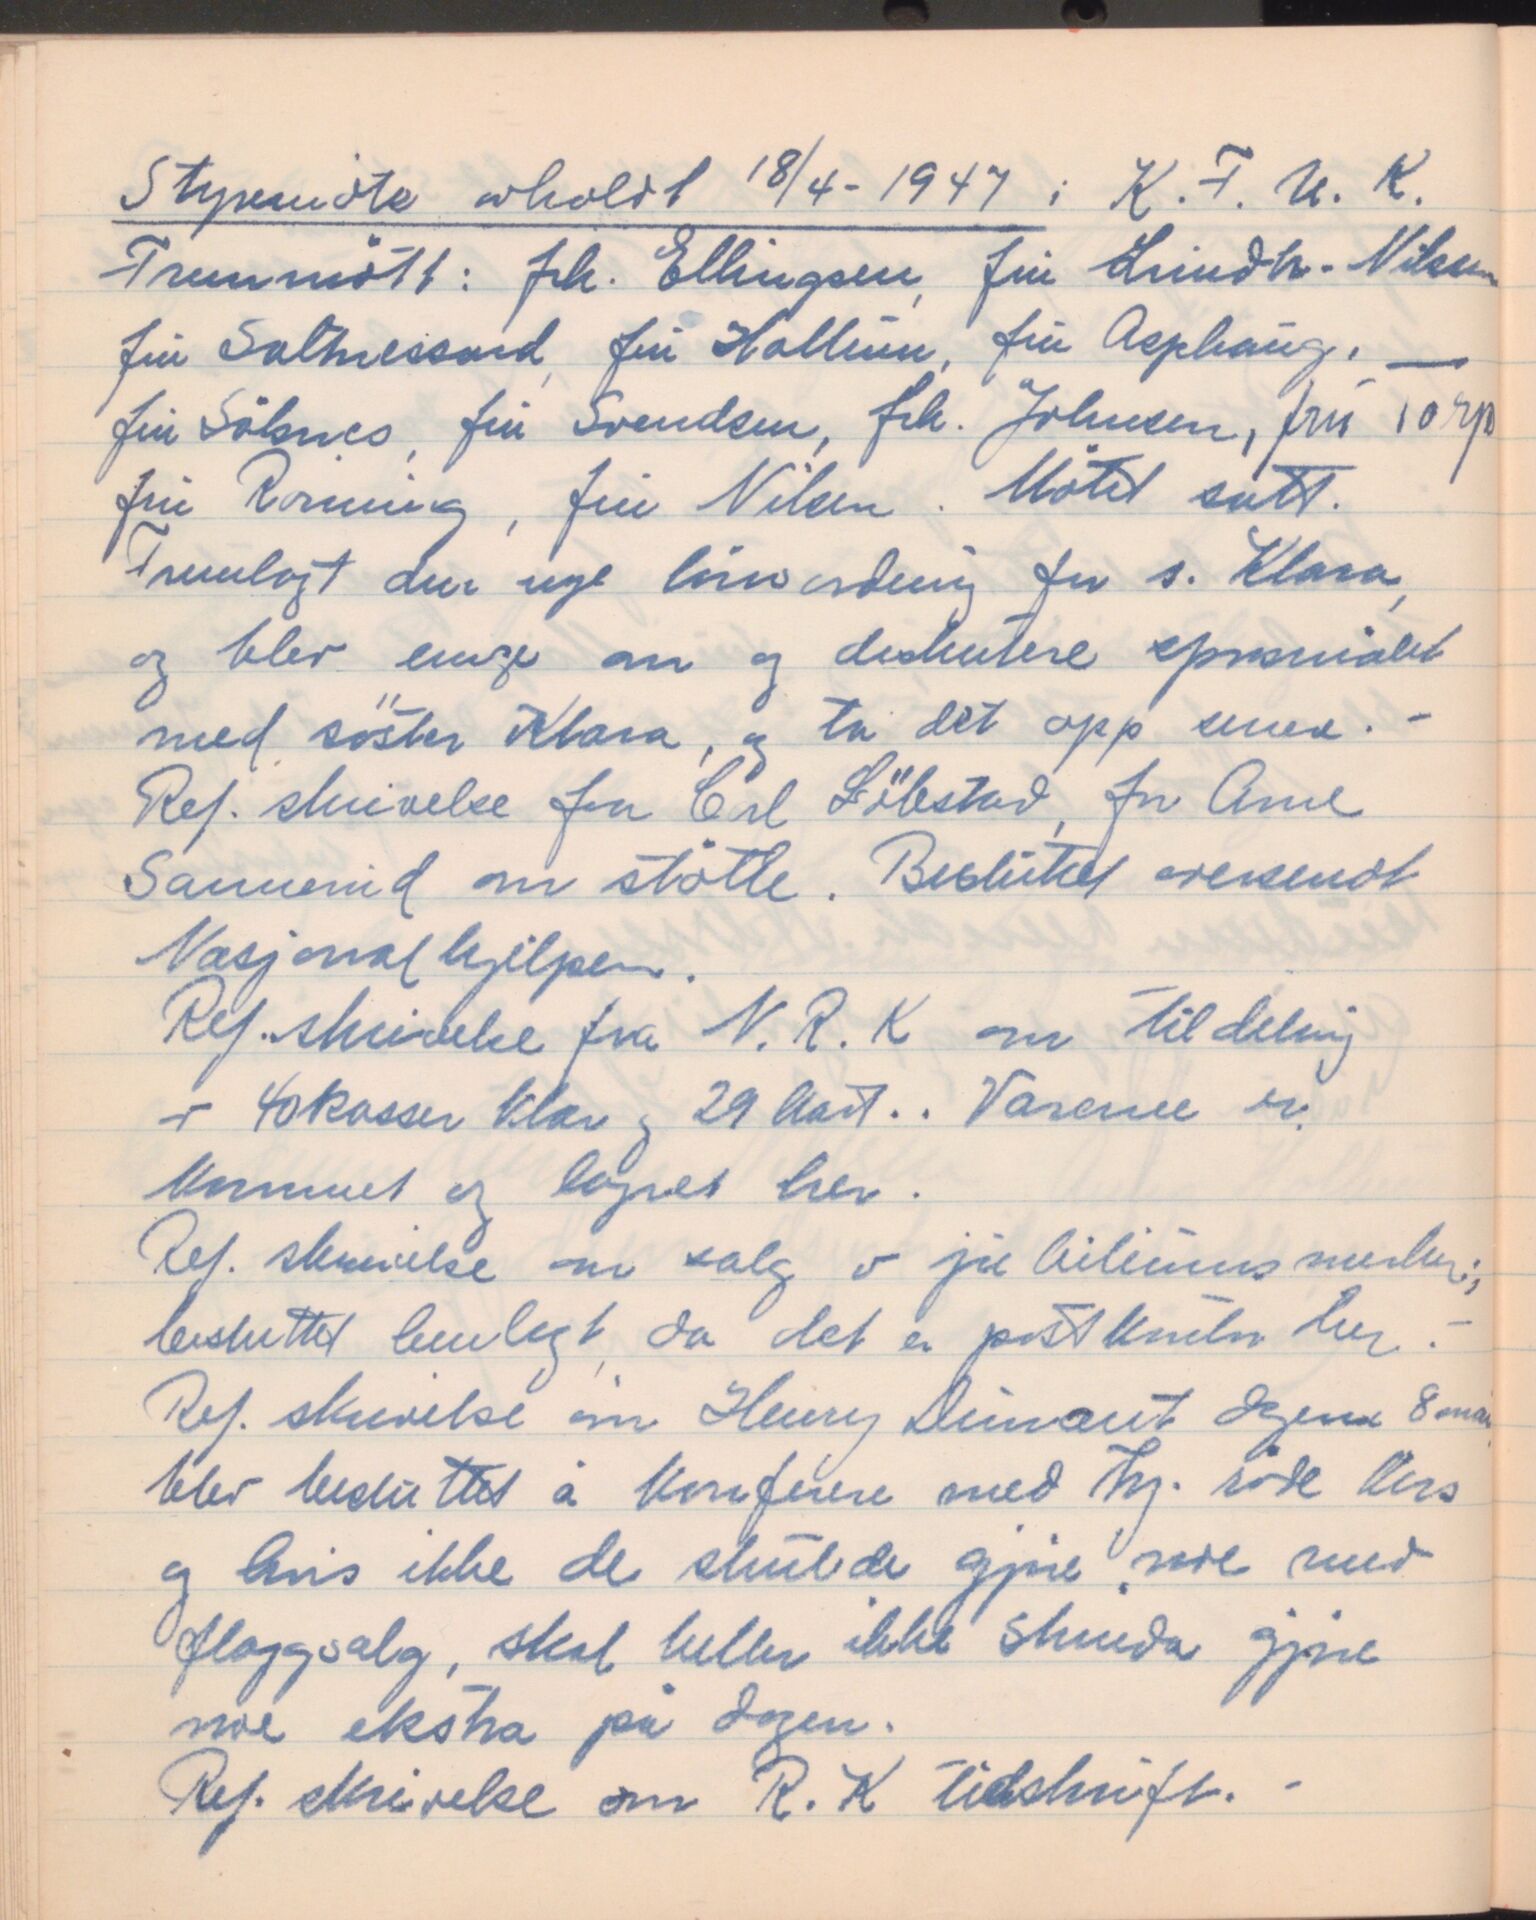 Styremöte avholdt 18/4-1947 i K.F.U.K.
Fremmött: frk. Ellingsen, frú Lindh-Nilsen
frú Saltnessand, frú Hallúm, frú Asphaúg,
frú Sölsnes, frú Svendsen, frk. Johnsen, frú Torp
frú Rorning, frú Nilsen. Mötet satt.
Fremlagt den nye lönsordning for s. Klara,
og blev enige om og diskutere spörsmålet
med söster Klara, og ta det opp senere. -
Ref. skrivelse fra Carl Löbstad, for Arne
Sannerúd om stötte. Beslúttet oversendt
Nasjonalhjelpen.
Ref. skrivelse fra N.R.K om tildeling
av 40 kasser klær og 29 kart.. Varene er
kommet og lagret her.
Ref. skrivelse om salg av jubileúmsmerker;
besluttet henlagt, da det er postkontor her. -
Ref. skrivelse om Henry Dúnant dagen 8 mai,
blev beslúttet å konferere med Trj. röde Kors
og hvis ikke de skúlde gjøre noe med
flaggsalg, skal heller ikke Strinda gjøre
noe ekstra på dagen.
Ref. skrivelse om R.K tidskrift. -